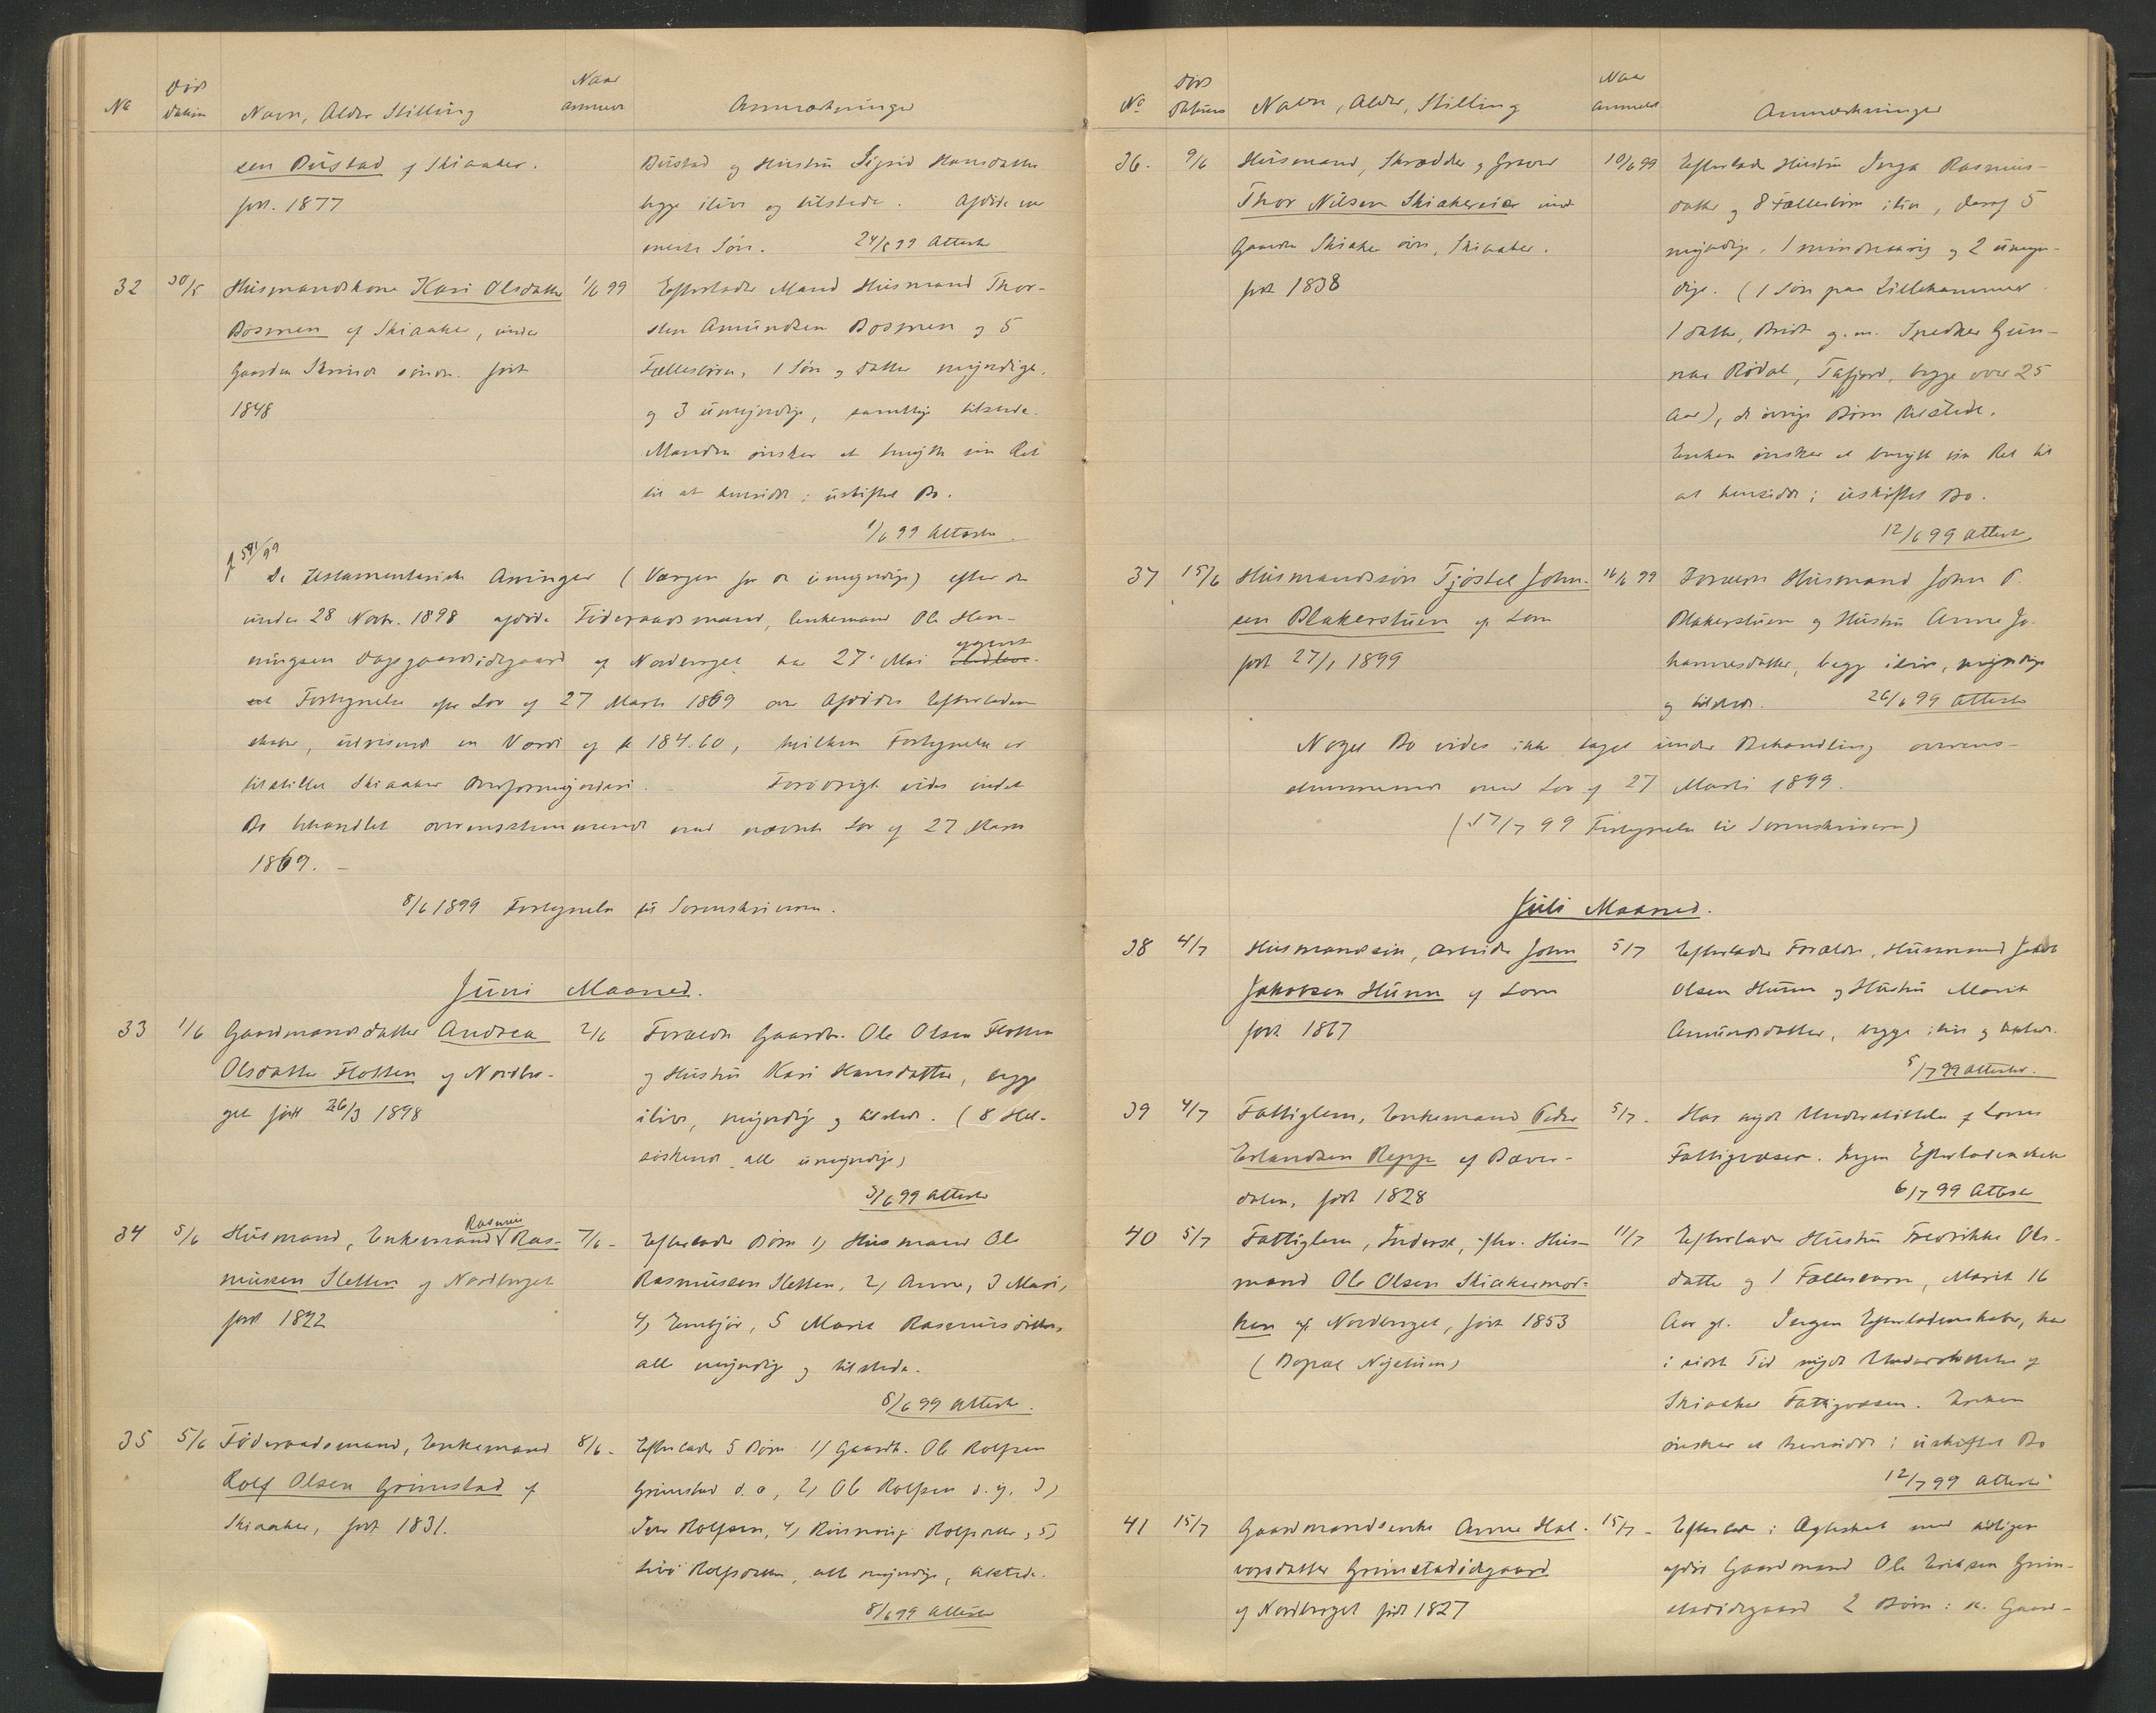 No
Døds
datum
Navn, Alder Stilling
Naar
anmeldt
Anmærkninger
sen Bustad af Skiaaker.
født. 1877
Bustad og Hustru Sigrid Hansdatter
begge ilive og tilstede. Afdøde var
Søn. 24/5 99 Attest
32 30/5 Husmandskone Kari Olsdatter 1/6 99
Bosmen af Skiaaker, under
Gaarden Skrinde søndre. født
1848
Efterlader Mand Husmand Thor-
sten Amundsen Bosmen og 5
Fællesbørn, 1 Søn og datter myndige,
og 3 umyndige, samtlige tilstede.
Manden ønsker at benytte sin Ret
til at hensidde i uskiftet Bo.
1/6 99 Attest
J 591/99
De testamentariske Arvinger (Værgen for de umyndige) efter den
under 28 Novbr. 1898 afdøde Føderaadsmand, Enkemand Ole Hen-
ningsen Dagsgaardsødegaard af Nordberget har 27. Mai
Fortegnelse efter Lov af 27 Marts 1869 over Afdødes Efterladen-
skaber, udvisende en Værdi af kr 184.60, hvilken Fortegnelse er
tilstillet Skiaaker Overformynderi. Forøvrigt vides intet
Bo behandlet overensstemmende med nævnte Lov af 27 Marts
1869. —
8/6 1899 Fortegnelse til Sorenskriveren.
Juni Maaned.
33 1/6 Gaardmandsdatter Andrea 2/6
Olsdatter Flotten af Nordber-
get født 26/3 1898
Forældre Gaardbr. Ole Olsen Flotten
og Hustru Kari Hansdatter, begge
ilive, myndige og tilstede. (8 Hel-
søskende alle umyndige)
3/6 99 Attest
34 5/6 Husmand, Enkemand Rasmus Ras- 7/6 -
mussen Sletten af Nordberget
født 1822
Efterlader Børn 1) Husmand Ole
Rasmussen Sletten, 2) Anne, 3 Mari,
4) Embjør, 5 Marit Rasmusdøttre,
alle myndige og tilstede.
8/6 99 Attest.
35 5/6 Føderaadsmand, Enkemand 8/6 -
Rolf Olsen Grimstad af
Skiaaker, født 1831.
Efterlader 5 Børn 1) Gaardb. Ole Rolfsen
Grimstad d.æ, 2) Ole Rolfsen d.y. 3)
Iver Rolfsen, 4) Rønnaug Rolfsdatter, 5)
Rolfsdatter, alle myndige, tilstede.
8/6 99 Attest
No
Døds
datum
Navn, Alder, Stilling
Naar
anmeldt
Anmærkninger
36. 9/6 Husmand, Skrædder og Graver 10/6 99
Thor Nilsen Skiakereie under
Gaarden Skiaker øvre, Skiaaker.
født 1838
Efterlader Hustru Inga Rasmus-
datter og 8 Fællesbørn ilive, deraf 5
myndige, 1 mindreaarig og 2 umyn-
dige. (1 Søn paa Lillehammer
1 datter, Brit g.m. Snedker Gun-
nar Rødal, Tafjord, begge over 25
Aar), de øvrige Børn tilstede.
Enken ønsker at benytte sin Ret til
at hensidde i uskiftet Bo.
12/6 99 Attest
37 15/6 Husmandssøn Tjøstel John- 16/6 99
sen Blakerstuen af Lom
født 27/1 1899
Forældre Husmand John P.
Blakerstuen og Hustru Anne Jo-
hannesdatter, begge ilive, myndige
og tilstede. 26/6 99 Attest
Noget Bo vides ikke taget under Behandling overens-
stemmende med Lov af 27 Marts 1899.
(17/7 99 Fortegnelse til Sorenskriveren)
Juli Maaned.
38 4/7 Husmandssøn, Arbeider John 5/7
Jakobsen Hunn af Lom
født 1867
Efterlader Forældre, Husmand Jakob
Olsen Hunn og Hustru Marit
Amundsdatter, begge ilive og tilstede.
5/7 99 Attest.
39 4/7 Fattiglem, Enkemand Peder 5/7.
Erlandsen Repp af Bæver-
dalen, født 1828
Har nydt Understøttelse af Loms
Fattigvæsen. Ingen Efterladenskaber
6/7 99 Attest
40 5/7 Fattiglem, Inderst, fhv. Hus- 11/7
mand Ole Olsen Skiakermor-
ken af Nordberget, født 1853
(Bopæl Nystuen)
Efterlader Hustru Fredrikke Ols-
datter og 1 Fællesbarn, Marit 16
Aar gl. Ingen Efterladenskaber, har
i sidste Tid nydt Understøttelse af
Skiaaker Fattigvæsen. Enken
ønsker at hensidde i uskiftet Bo
12/7 99 Attest
41 15/7 Gaardmandsenke Anne Hal- 15/7 -
vorsdatter Grimstadødegaard
af Nordberget født 1827
Efterlader i Ægteskab med tidligere
afdøde Gaardmand Ole Eriksen Grim-
stadødegaard 2 Børn: a. Gaard-